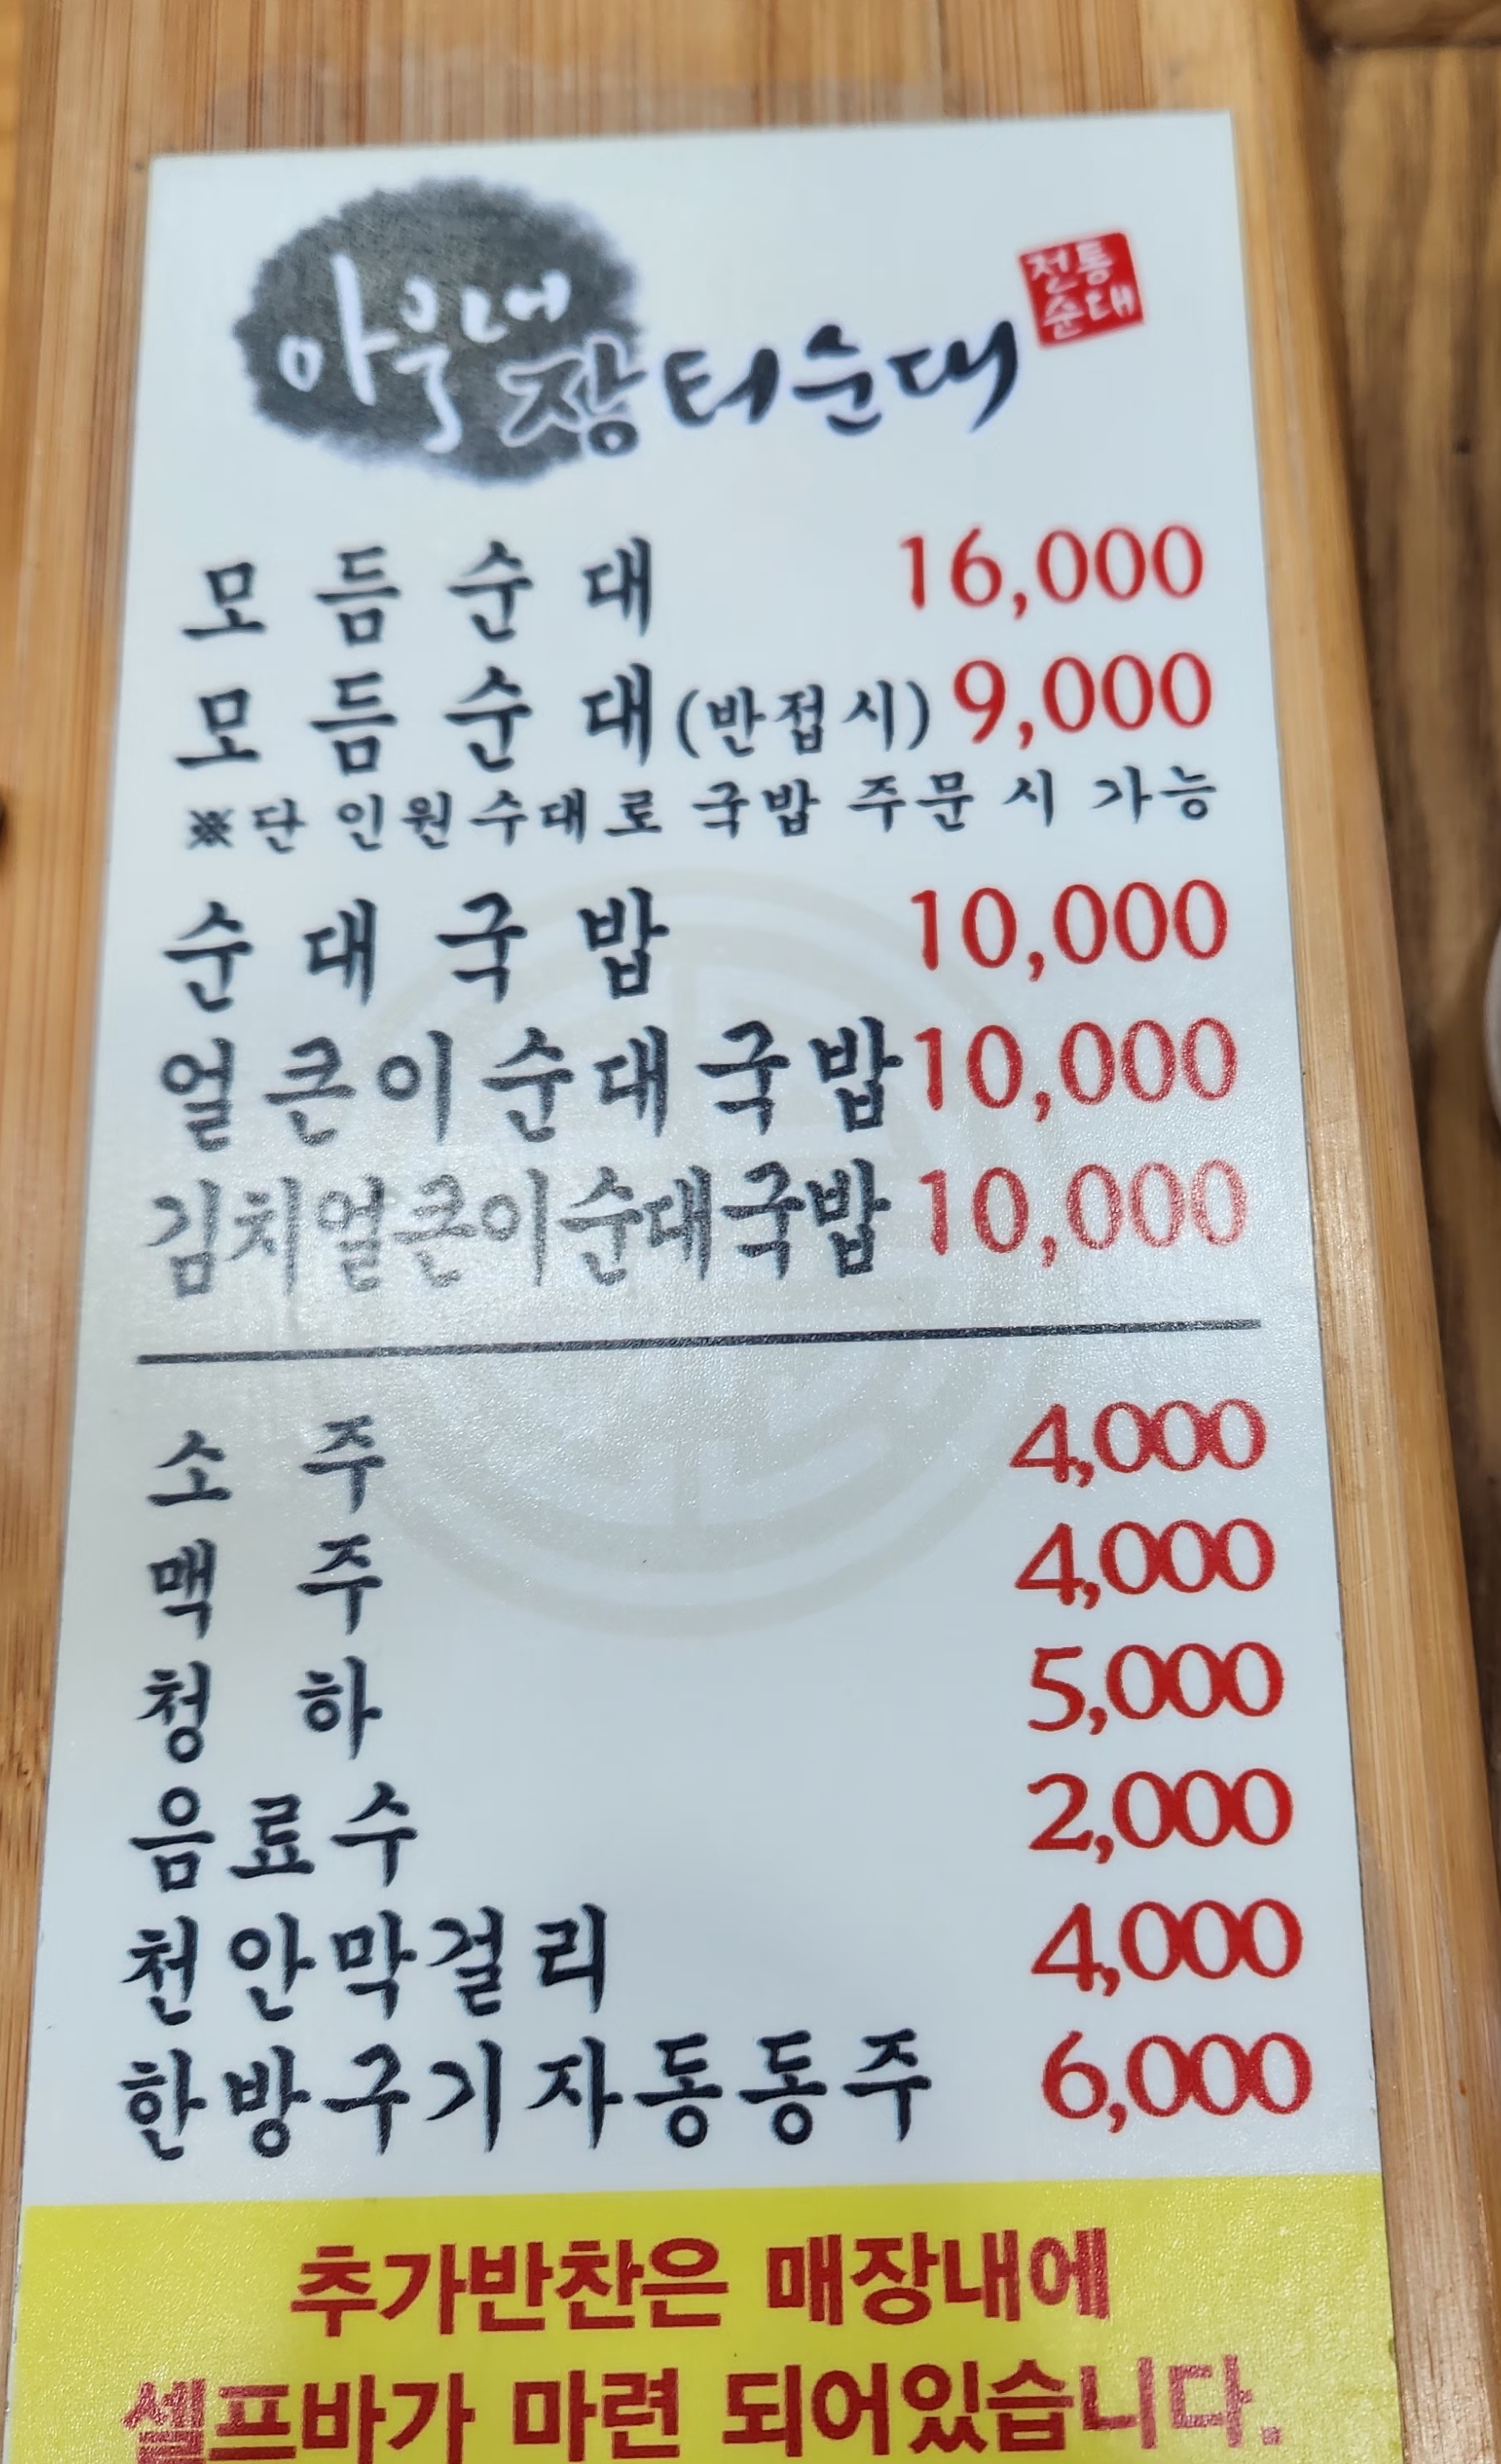 아우내 장터순대
전통
순대
모듬순대 16,000
모듬순대(반접시) 9,000
※단 인원수대로 국밥 주문 시 가능
순대국밥 10,000
얼큰이순대국밥 10,000
김치얼큰이순대국밥 10,000
소주 4,000
맥주 4,000
청하 5,000
음료수 2,000
천안막걸리 4,000
한방구기자동동주 6,000
추가반찬은 매장내에
셀프바가 마련 되어있습니다.